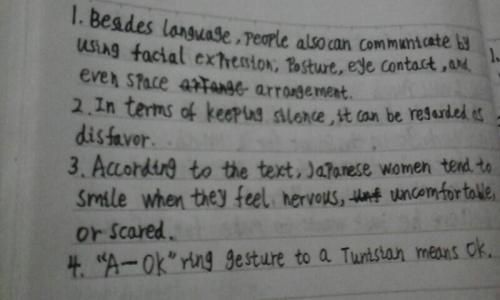 1. Besides language, people also can communicate by
using facial expression, Posture, eye contact, and
even space arrange arrangement.
2. In terms of keeping silence, it can be regarded as
disfavor.
3. According to the text, Japanese women tend to
smile when they feel nervous, uncomfortable,
or scared.
4. "A-OK" ring gesture to a Tunisian means OK.